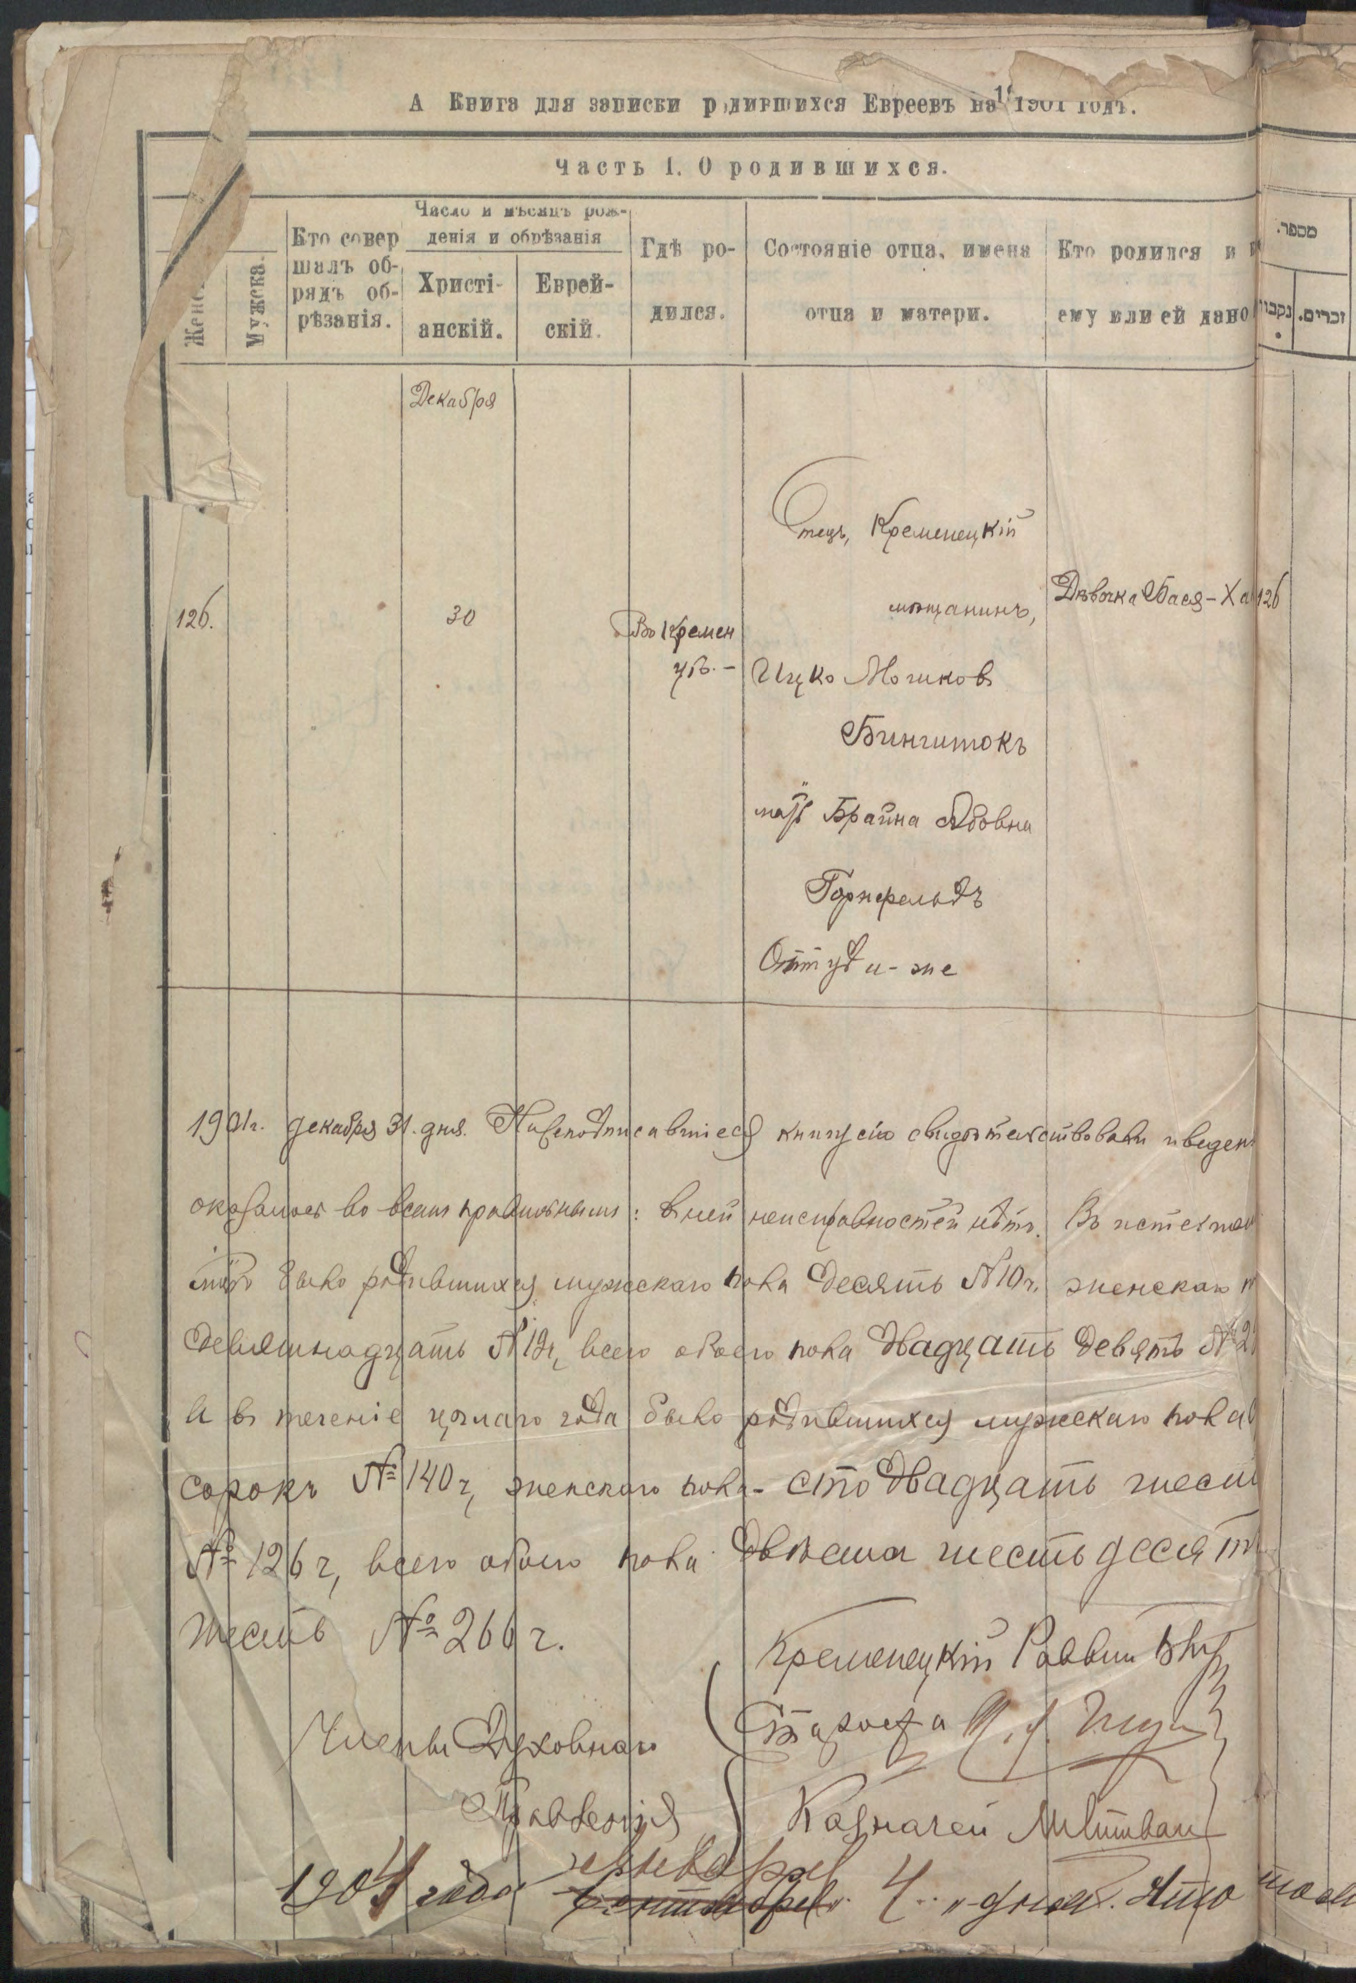 А Книга для записки родившихся Евреевъ на 1901 годъ.
Часть I. О родившихся.
Женс
Мужска.
Кто совер
шалъ об-
рядъ об-
рѣзанія.
Число и мѣсяцъ рож-
денія и обрѣзанія
Христі-
анскій.
Еврей-
скій.
Гдѣ ро-
дился.
Состояніе отца, имена
отца и матери.
Кто родился и
ему или ей дано
מספר.
נקבו
זכרים.
Декабря
126.
30
Въ Кремен
цѣ. –
Отецъ, Кременецкій
мѣщанинъ,
Ицко Мошков
Бингштокъ
мать Брайна
Горнфельдъ
Оттуда-же
Дѣвочка Бася-Ха
126
1901 г. декабря 31 дня. Нижеподписавшіеся книгу сію свидѣтельствовали и веден
оказалось во всемъ правильнымъ: в ней неисправностей нѣтъ. Въ истекшем
было родившихся мужскаго пола десять № 10 ч, женскаго п
девятнадцать № 19 ч, всего обоего пола двадцать девять № 2
а в теченіе цѣлаго года было родившихся мужскаго пола
сорокъ № 140 ч, женскаго пола – сто двадцать шест
№ 126 ч, всего обоего пола двѣсти шестьдесят
шесть № 266 ч.
Кременецкій Раввин
Члены Духовнаго
Правленія
Староста
Казначей
1904 года января
сентября 4 дня. Что